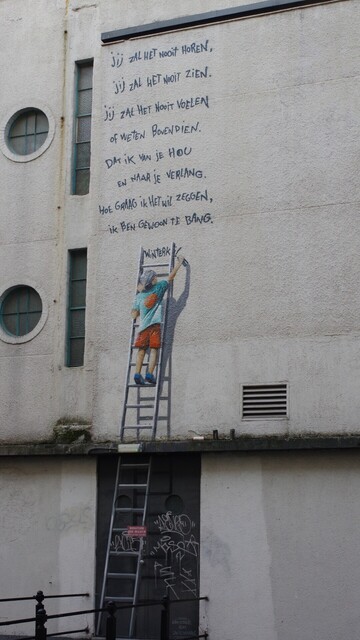 jij ZAL HET NOOIT HOREN,
jij ZAL HET NOOIT ZIEN.
jij ZAL HET NOOIT VOELEN
OF WETEN BOVENDIEN.
DAT IK VAN JE HOU
EN NAAR JE VERLANG.
HOE GRAAG IK HET WIL ZEGGEN,
IK BEN GEWOON TE BANG.